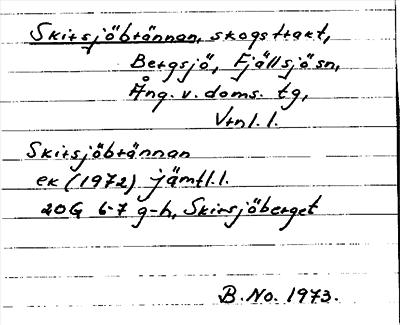 Skirsjöbrännan, skogstrakt,
Bergsjö, Fjällsjö sn,
Ång. v. doms. tg,
Vrnl. l.
Skirsjöbrännan
ek (1972) jämtl. l.
20G 6-7 g-h, Skirsjöberget
B. No. 1973.